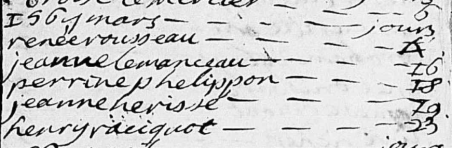 1567 mars — — — — jours
renéerousseau — — — — X
jeannelemanceau — — — 16
perrinephelippon — — — 18
jeanneherisse — — — 19
henryraciquot — — — — 23